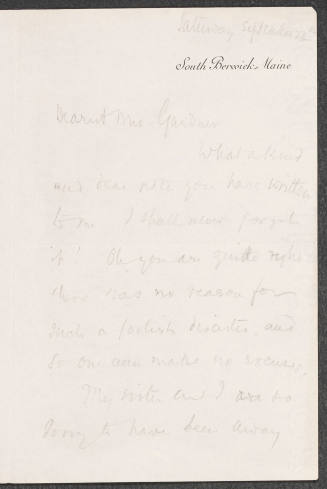 Saturday September
South Berwick, Maine
Dearest Mrs. Gardner
What a kind
and dear note you have written
to me I shall never forget
it! Oh you are quite right
there was no reason for
such a foolish disaster, and
so one can make no excuses.
My sister and I are so
sorry to have been away